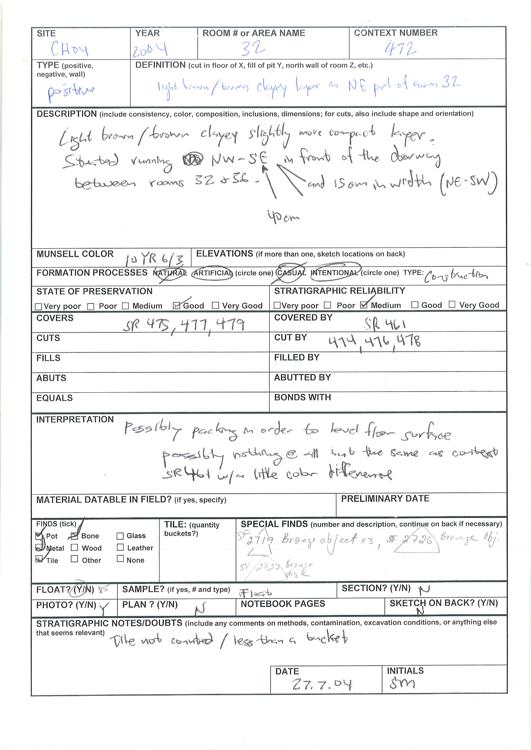 SITE YEAR ROOM # or AREA NAME CONTEXT NUMBER
CHOY 2004 32 472
TYPE (positive, negative, wall) DEFINITION (cut in floor of X, fill of pit Y, north wall of room Z, etc.)
positive light brown/brown clayey layer in NE part of room 32
DESCRIPTION (include consistency, color, composition, inclusions, dimensions; for cuts, also include shape and orientation)
Light brown/brown clayey slightly more compact layer.
Situated running NW-SE in front of the doorway
between rooms 32 & 36. and 150cm in width (NE-SW)
40cm
MUNSELL COLOR 10 YR 6/3 ELEVATIONS (if more than one, sketch locations on back)
FORMATION PROCESSES NATURAL ARTIFICIAL (circle one) CASUAL INTENTIONAL (circle one) TYPE: Construction
STATE OF PRESERVATION STRATIGRAPHIC RELIABILITY
Very poor Poor Medium Good Very Good Very poor Poor Medium Good Very Good
COVERS SR 475, 477, 479 COVERED BY SR 461
CUTS CUT BY 474, 476, 478
FILLS FILLED BY
ABUTS ABUTTED BY
EQUALS BONDS WITH
INTERPRETATION Possibly packing in order to level floor surface
possibly nothing @ all but the same as context
SR 461 w/ a little color difference
MATERIAL DATABLE IN FIELD? (if yes, specify) PRELIMINARY DATE
FINDS (tick) TILE: (quantity buckets?) SPECIAL FINDS (number and description, continue on back if necessary)
Pot Bone Glass SF 2719 Bronze object x3, SF 2726 Bronze Obj.
Metal Wood Leather
Tile Other None SF 2727 Bronze
FLOAT? (Y/N) SAMPLE? (if yes, # and type) Float SECTION? (Y/N) N
PHOTO? (Y/N) Y PLAN ? (Y/N) N NOTEBOOK PAGES SKETCH ON BACK? (Y/N) N
STRATIGRAPHIC NOTES/DOUBTS (include any comments on methods, contamination, excavation conditions, or anything else that seems relevant)
Tile not counted / less than a bucket
DATE INITIALS
27.7.04 SM